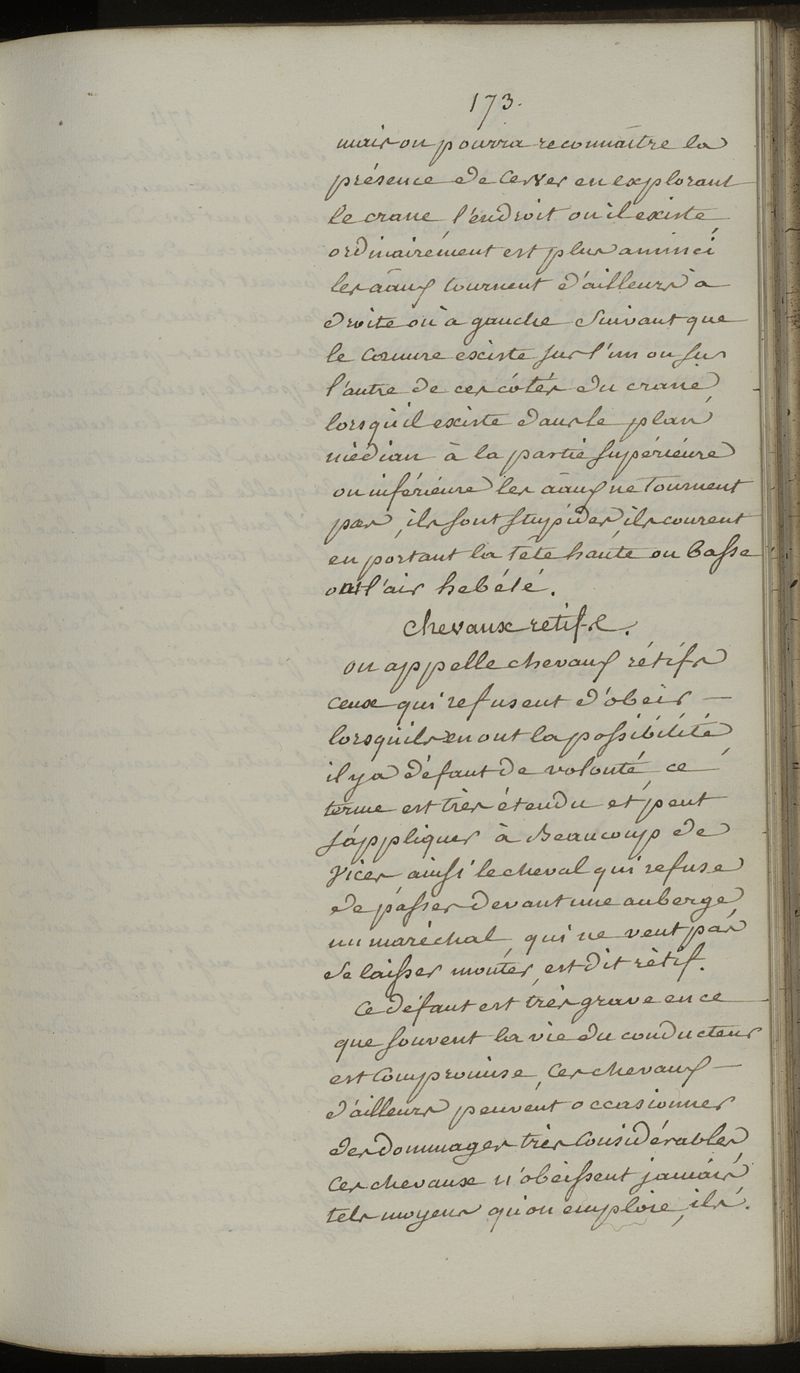 173.
mais on pourra reconnaitre la
présence de ce ver en explorant
le crane l'endroit ou il existe
ordinairement est plus aminci
les aäux tournent d'ailleurs à
droite ou à gauche suivant que
le cœnure existe sur l'un ou sur
l'autre de ces cótés du crane
lorsqu'il existe dans le plan
médian à la partie supérieure
ou inférieure les aäux ne tournent
pas, ils sont stupides, ils courent
en portant la tête haute ou basse
ont l'air hebété.
Chevaux retifs.
on appelle chevaux rétifs
ceux qui refusent d'obéir —
lorsqu'ils en ont la possibilité
il y a défaut de volonté, ce
terme est très étendu et peut
s'appliquer à Beaucoup de
Vices, ainsi le cheval qui refuse
de passer devant une auberge
un maréchal, qui ne veut pas
se laisser monter, est dit rétif.
Ce défaut est très grave en ce
que souvent la vie du conducteur
est compromise, Ces chevaux —
d'ailleurs peuvent occasionner
des dommages très considérables
Ces chevaux n'obéissent jamais
tels moyens qu'on emploie, ils.